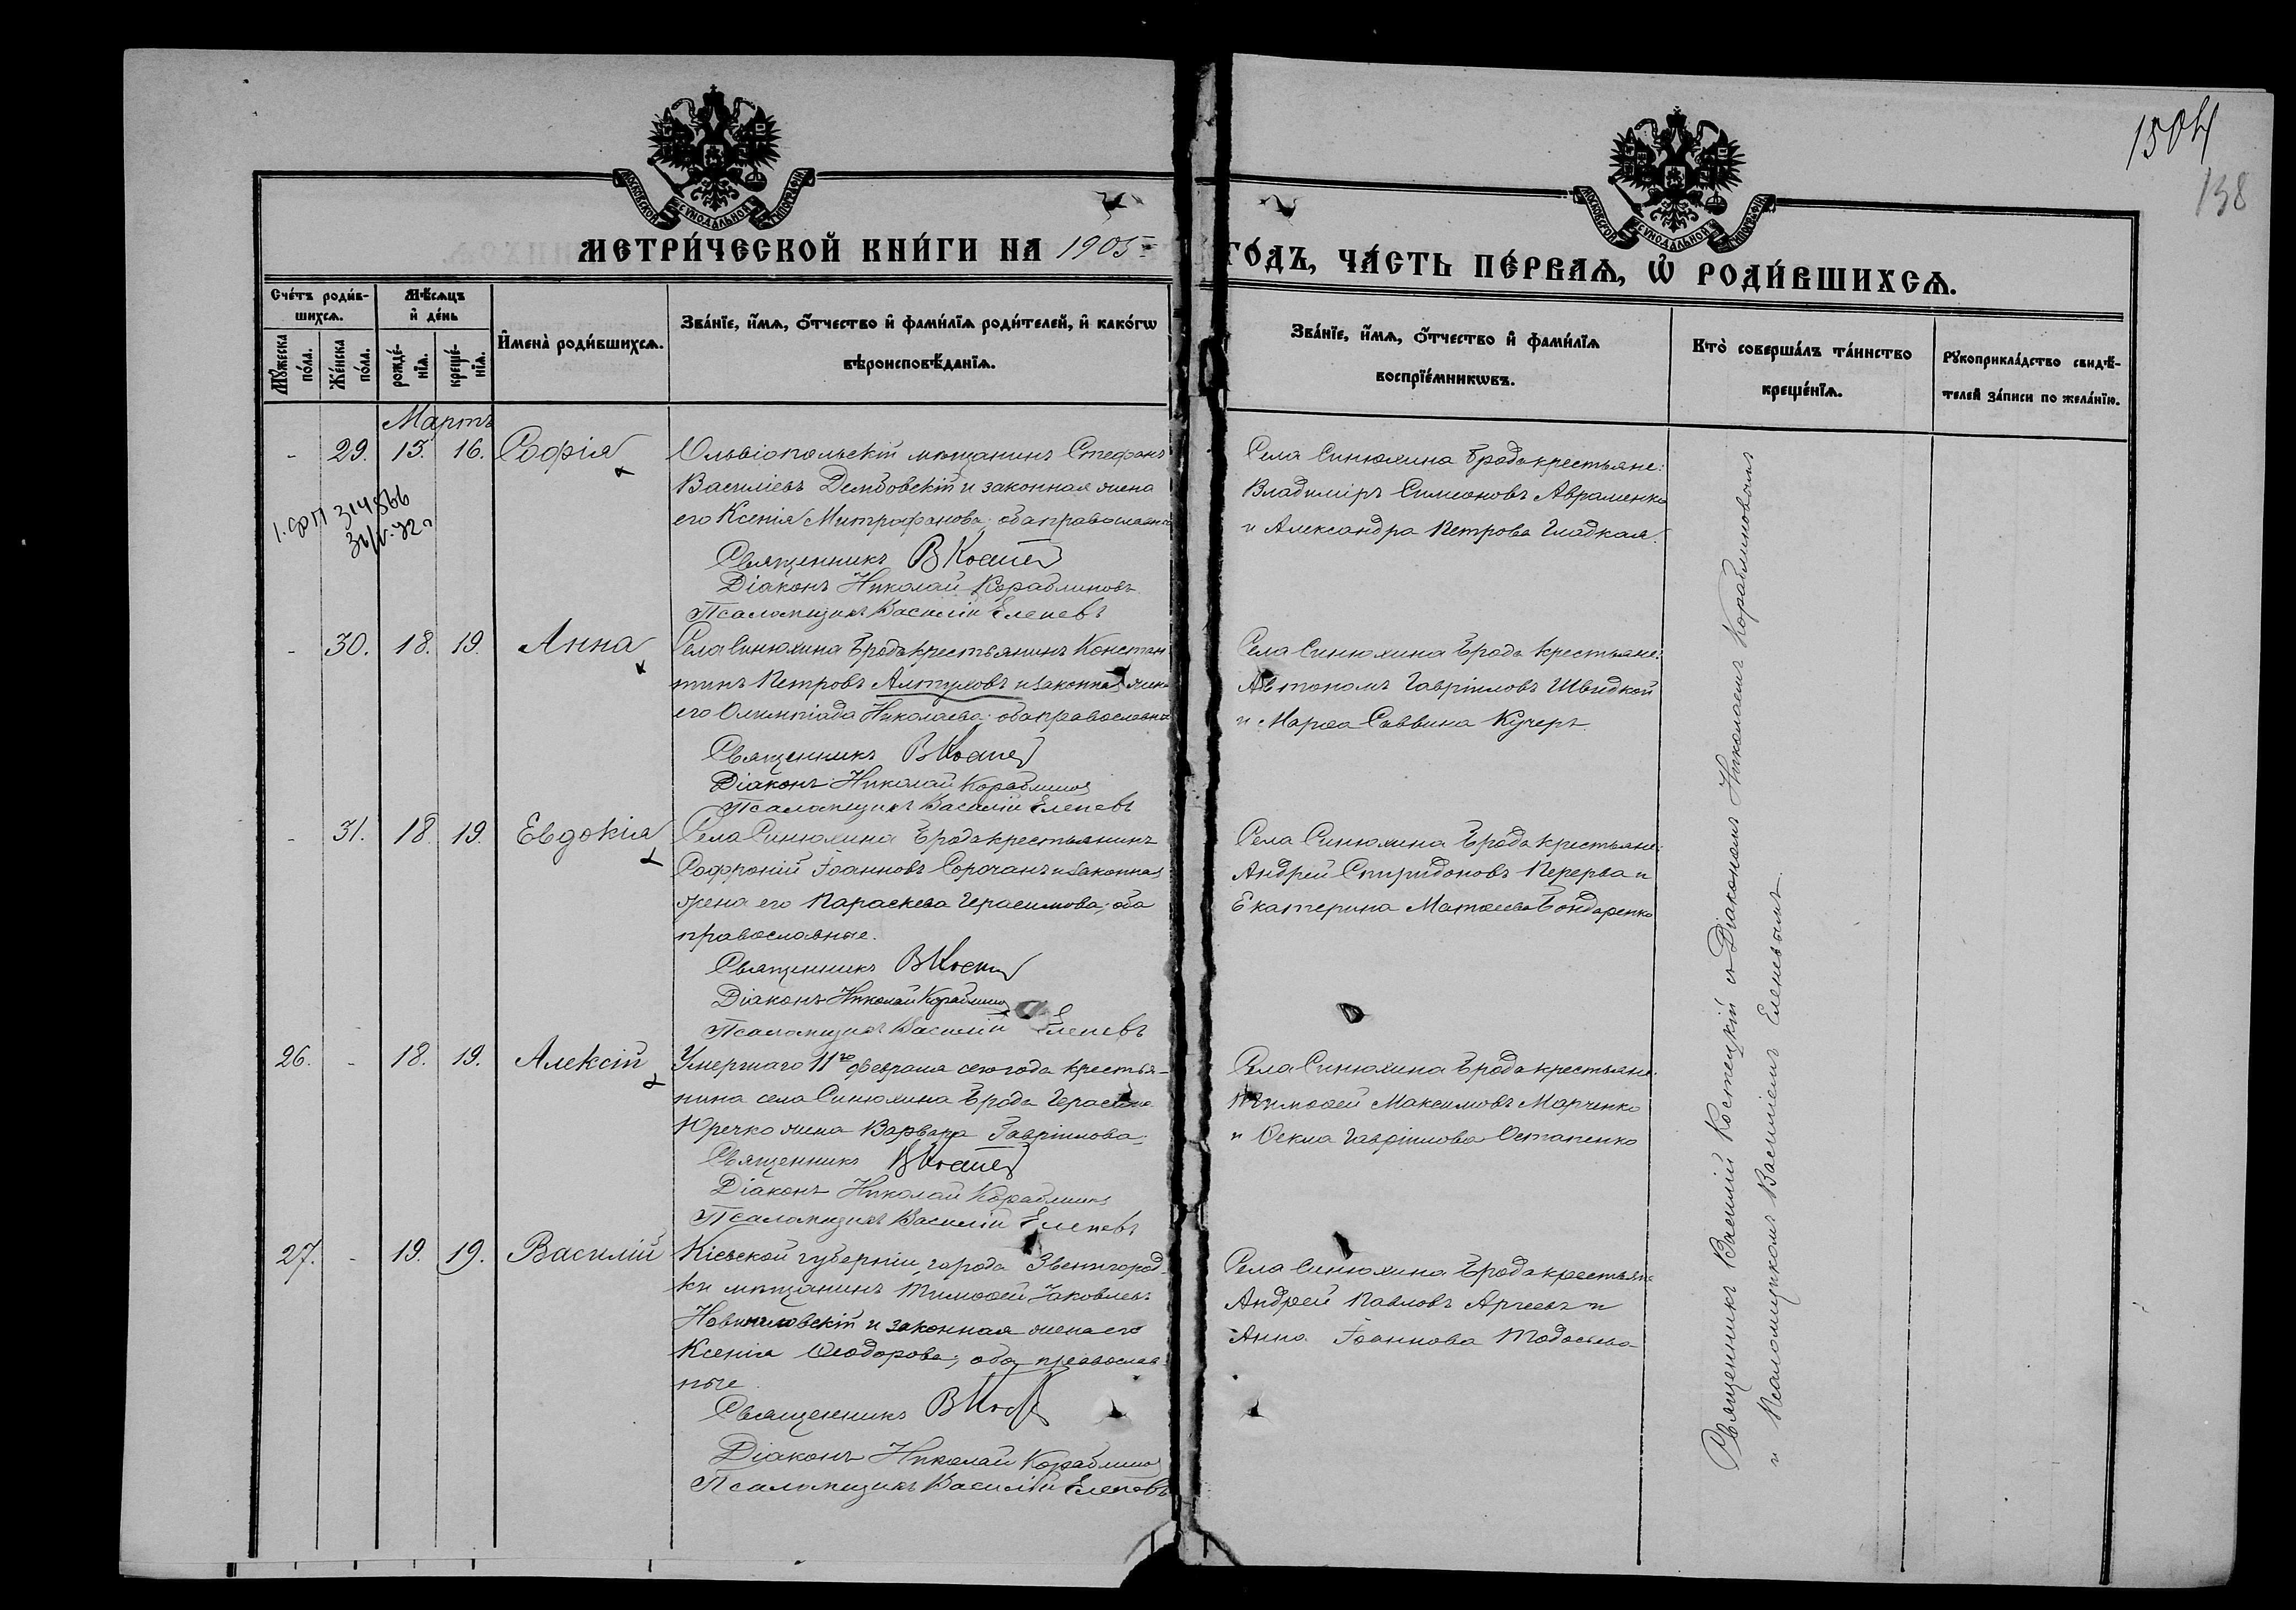 1504
138
МОСКОВСКОЙ СѴНОДАЛЬНОЙ ТИПОГРАФІИ
МОСКОВСКОЙ СѴНОДАЛЬНОЙ ТИПОГРАФІИ
МЕТРИ́ЧЕСКОЙ КНИ́ГИ НА 1905
ГО́ДЪ, ЧА́СТЬ ПЕ́РВАѦ, Ѡ҆ РОДИ́ВШИХСѦ.
Сче́тъ роди́в-
шихсѧ.
Мѣ́сѧцъ
и҆ де́нь
Мꙋ́жеска
по́ла.
Же́нска
по́ла.
рожде́-
нїѧ.
креще́-
нїѧ.
И҆мена̀ роди́вшихсѧ.
Зва́нїе, и҆́мѧ, ѻ҆́тчество и҆ фами́лїѧ роди́телей, и҆ како́гѡ
вѣроисповѣ́данїѧ.
Зва́нїе, и҆́мѧ, ѻ҆́тчество и҆ фами́лїѧ
воспрїе́мникѡвъ.
Кто̀ соверша́лъ та́инство
креще́нїѧ.
Рꙋкоприкла́дство свидѣ́-
телей за́писи по жела́нїю.
Мартъ
- 29. 15. 16. Софія
Ольвіопольскій мѣщанинъ Стефанъ
Василіевъ Дембовскій и законная жена
его Ксенія Митрофанова; оба православн
Священникъ В Косте
Діаконъ Николай Кораблиновъ
Псаломщикъ Василій Еленевъ
Села Синюхина Брода крестьяне:
Владиміръ Симеоновъ Авраменко
и Александра Петрова Гладкая.
314566
- 30. 18. 19. Анна
Села Синюхина Брода крестьянинъ Констан
тинъ Петровъ Алтуховъ и законная жена
его Олимпіада Николаева; оба православные
Священникъ В Косте
Діаконъ Николай Кораблинов
Псаломщикъ Василій Еленевъ
Села Синюхина Брода крестьяне:
Автономъ Гавріиловъ Швидкой
и Марѳа Саввина Кучеръ
- 31. 18. 19. Евдокія
Села Синюхина Брода крестьянинъ
Софроній Іоанновъ Сорочанъ и законная
жена его Параскева Герасимова; оба
православные.
Священникъ В Косте
Діаконъ Николай Кораблинов
Псаломщикъ Василій Еленевъ
Села Синюхина Брода крестьяне:
Андрей Спиридоновъ Перерва и
Екатерина Матѳеева Бондаренко
26. - 18. 19. Алексій
Умершаго 11го февраля сего года крестья-
нина села Синюхина Брода Герасима
Юречко жена Варвара Гавріилова;
Священникъ В Косте
Діаконъ Николай Кораблинов
Псаломщикъ Василій Еленевъ
Села Синюхина Брода крестьяне:
Тимоѳей Максимовъ Марченко
и Ѳекла Гавріилова Остапенко
27. - 19. 19. Василій
Кіевской губерніи, города Звенигород-
ки мѣщанинъ Тимоѳей Іаковлевъ
и законная жена его
Ксенія Ѳеодорова; оба православ-
ные
Священникъ В Косте
Діаконъ Николай Кораблинов
Псаломщикъ Василій Еленевъ
Села Синюхина Брода крестьяне
Андрей Павловъ и
Анна Іоаннова
Священникъ Василій Костецкій съ Діакономъ Николаемъ Кораблиновымъ
и Псаломщикомъ Василіемъ Еленевымъ.